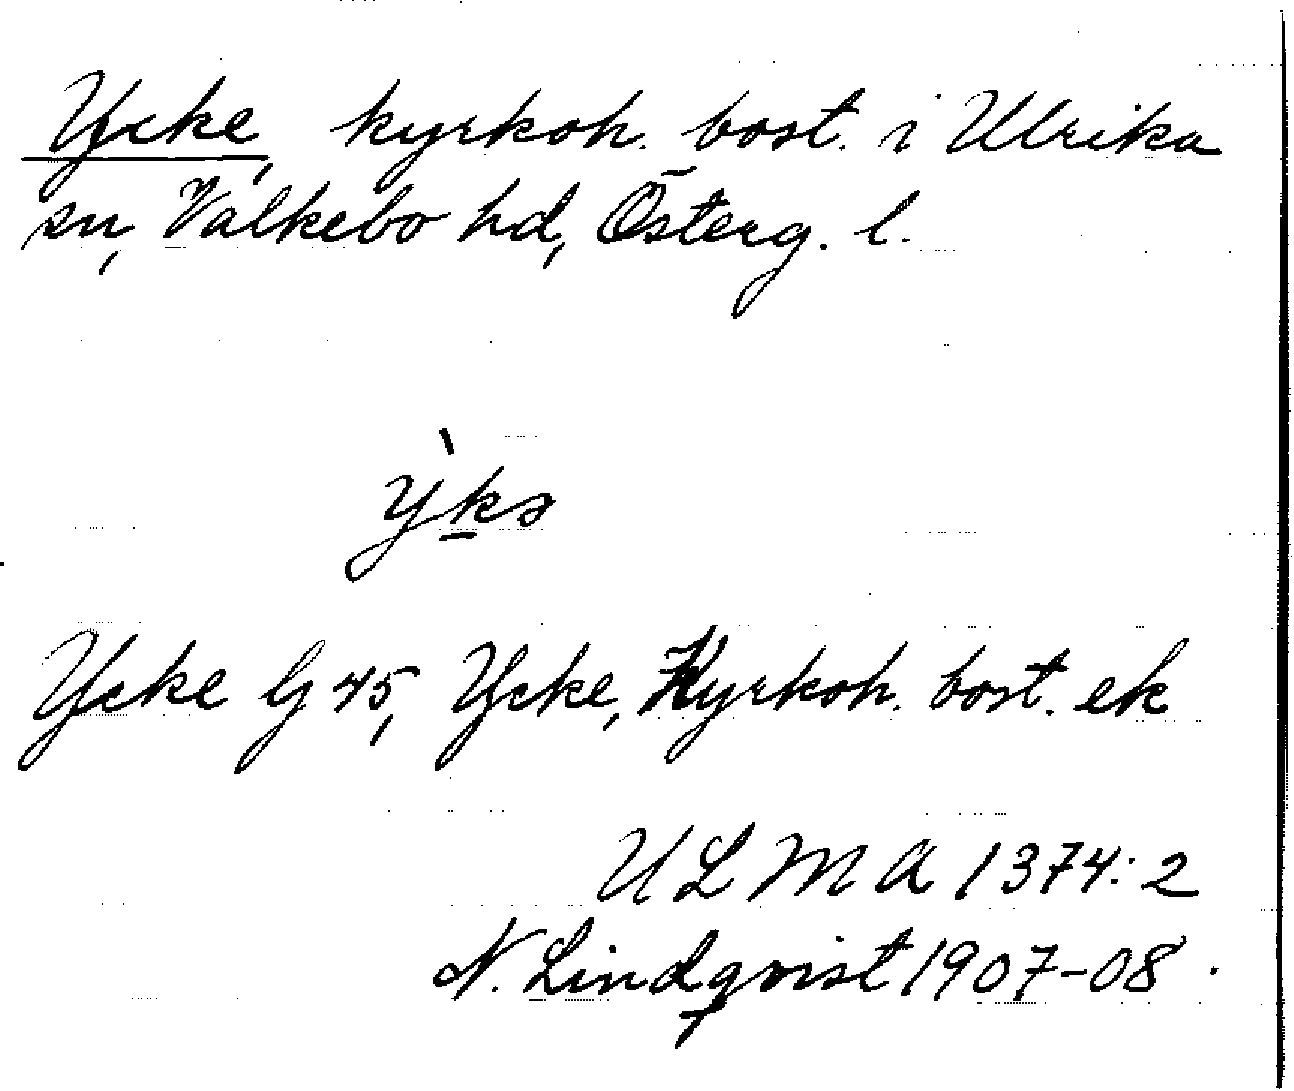 Ycke, kyrkoh. bost. i Ulrika
sn, Valkebo hd, Österg. l.
ỳkə
Ycke G 45, Ycke, Kyrkoh. bost. ek
ULMA 1374:2
N. Lindqvist 1907-08.